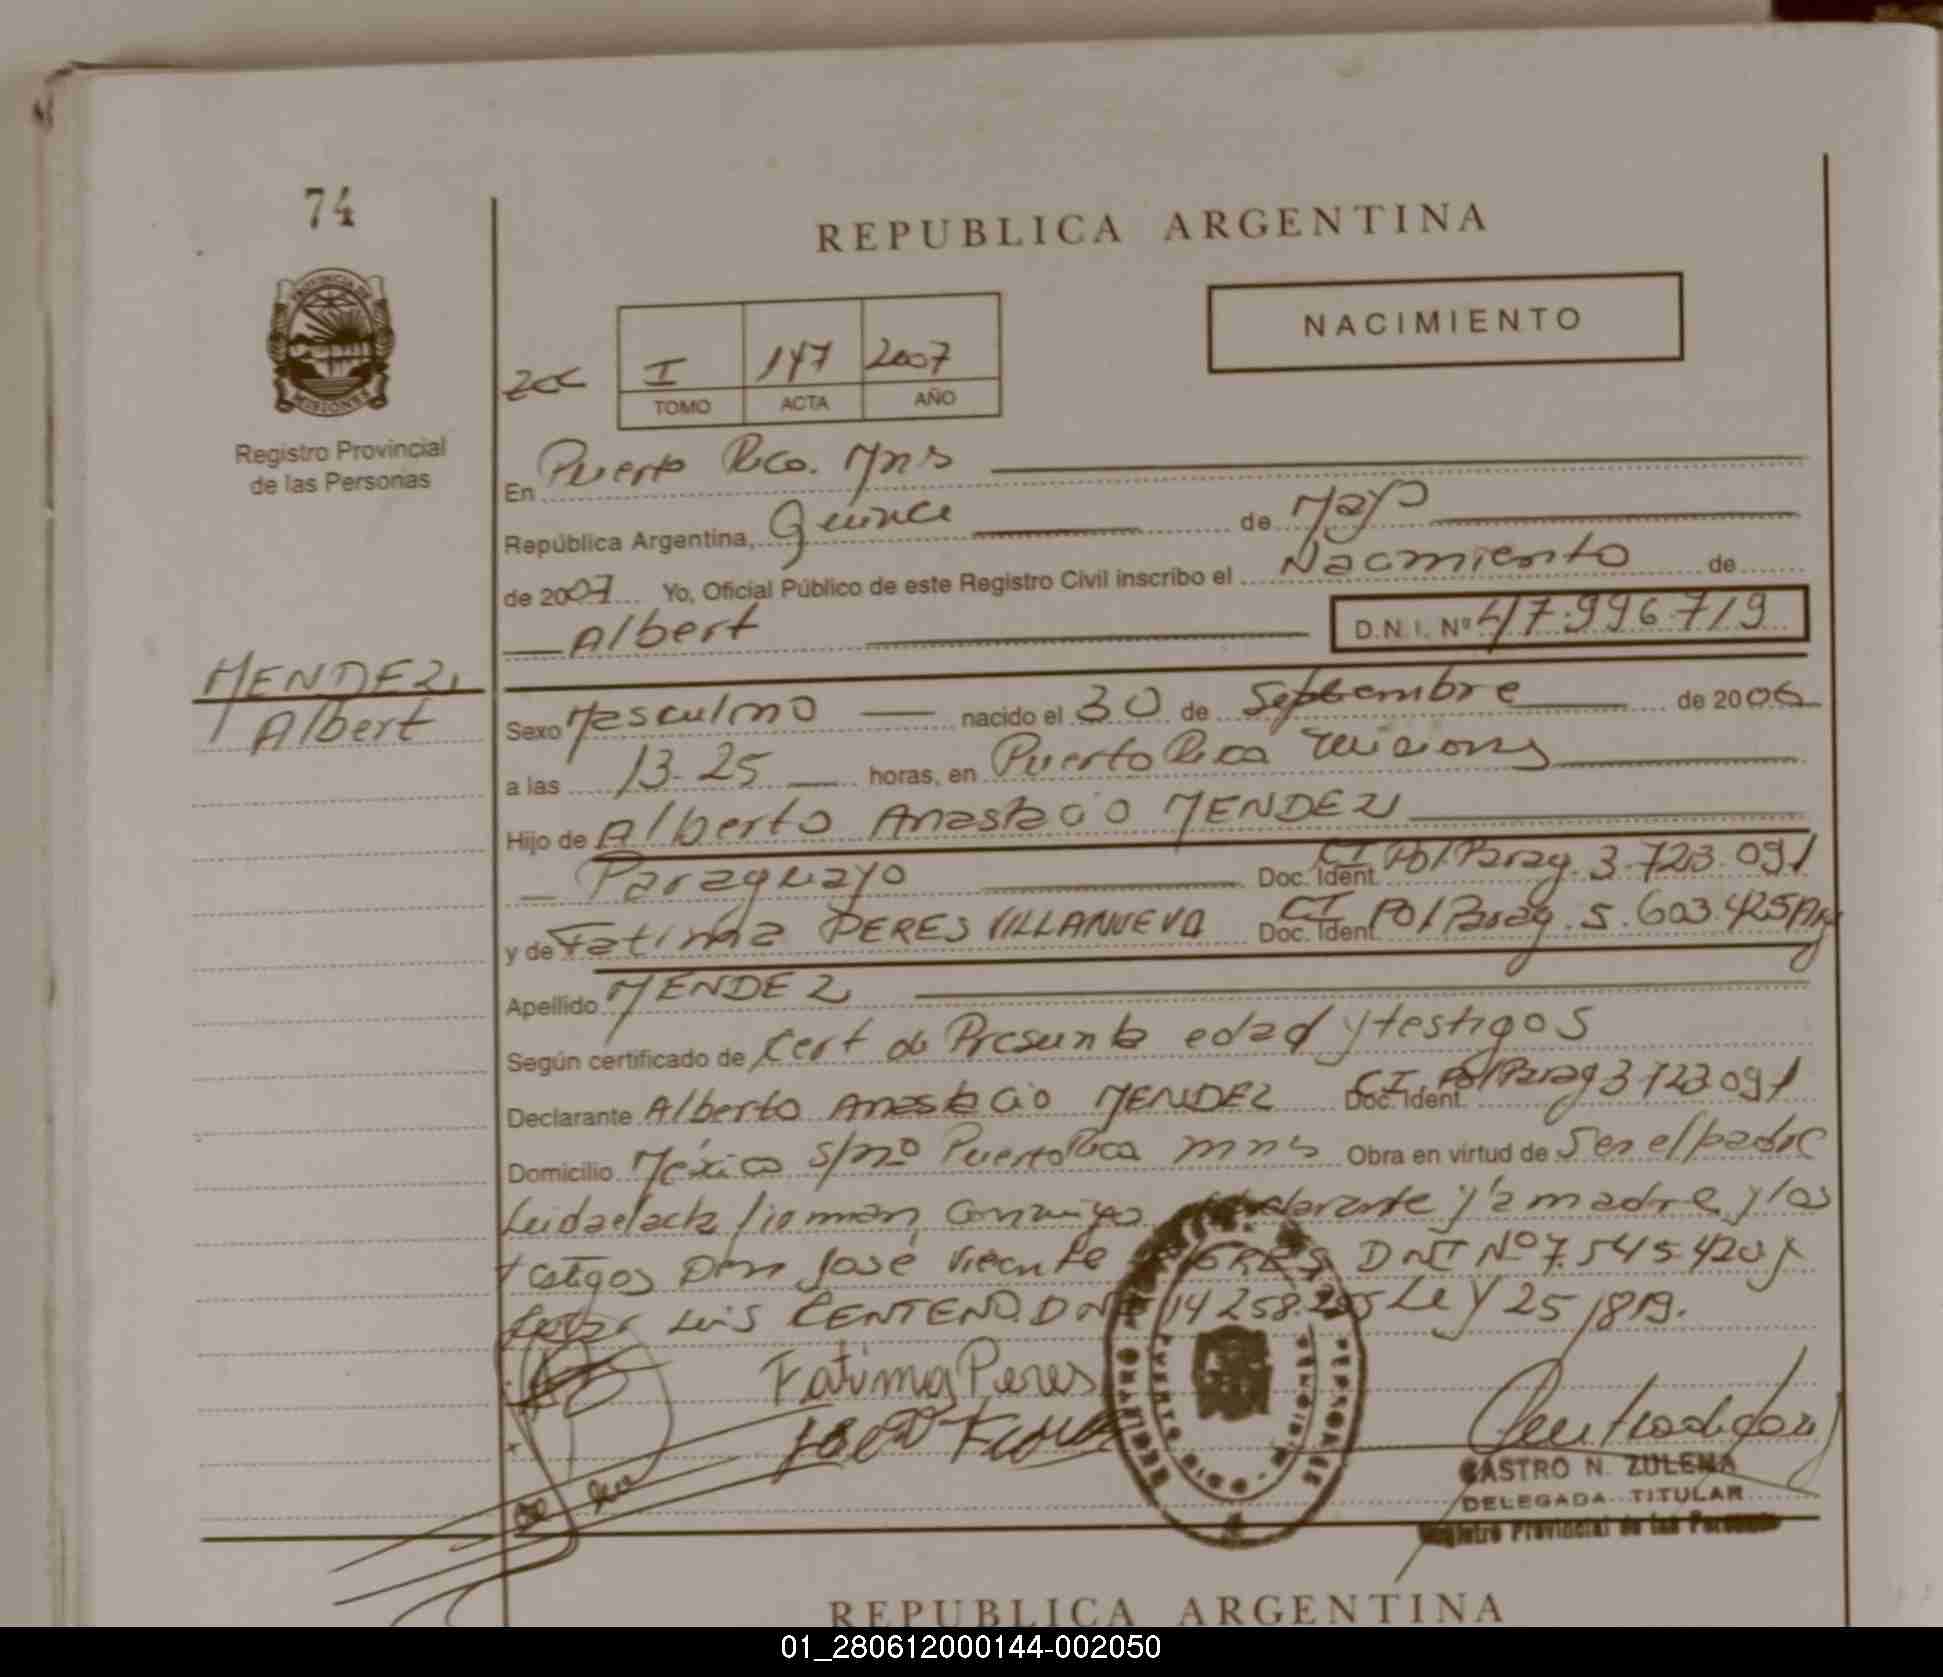 74
REPUBLICA ARGENTINA
PROVINCIA DE
MISIONES
Registro Provincial
de las Personas
NACIMIENTO
I 147 2007
TOMO ACTA AÑO
En Puerto Rico. Mns
República Argentina, Quince de Mayo
de 2007 Yo, Oficial Público de este Registro Civil inscribo el Nacimiento de
Albert D.N.I. Nº 47.996.719
MENDEZ,
Albert
Sexo Masculino nacido el 30 de Septiembre de 2006
a las 13.25 horas, en Puerto Rico Misiones
Hijo de Alberto Anastacio MENDEZ
Paraguayo Doc. Ident. CI Pol Parag. 3.723.091
y de Fatima PERES VILLANUEVA Doc. Ident. CI Pol Parag. 5.603.425 Arg
Apellido MENDEZ
Según certificado de Cert de Presunta edad y testigos
Declarante Alberto Anastacio MENDEZ Doc. Ident. CI. Pol Parag 3.723.091
Domicilio México s/nº Puerto Rico mns Obra en virtud de Ser el padre
Leida el acta firman conmigo declarante y la madre y los
testigos Don José Vicente DNI Nº 7.545.420 y
Luis CENTENO. DNI 14.258. Ley 25.819.
Fatima Peres
REGISTRO DE LAS PERSONAS
CASTRO N. ZULEMA
DELEGADA TITULAR
Registro Provincial de las Personas
REPUBLICA ARGENTINA
01_280612000144-002050